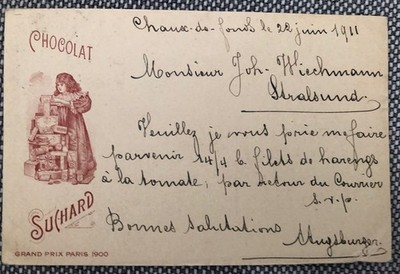 CHOCOLAT
SUCHARD
GRAND PRIX PARIS 1900
Chaux-de-fonds le 22 juin 1911
Monsieur Joh. Wiechmann
Stralsund.
Veuillez je vous prie me faire
parvenir 14/4 b. filets de harengs
à la tomate; par retour du Courrier
s.v.p.
Bonnes salutations
Augsburger.